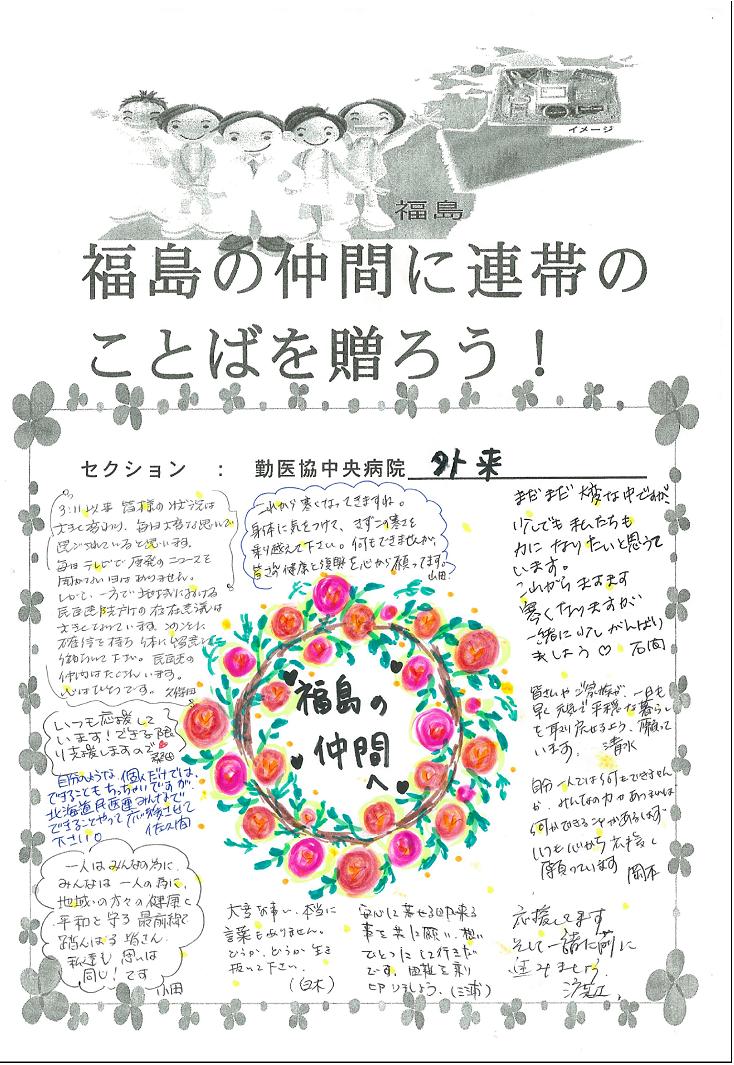 イメージ
福島
福島の仲間に連帯の
ことばを贈ろう！
セクション ： 勤医協中央病院 外来
3.11以来 皆様の状況は
大きく変わり、毎日大変な思いで
過ごされていると思います。
毎日テレビで原発のニュースを
聞かない日はありません。
しかし、一方で地域における
民医連
確信を持ち 体に留意し
頑られて下さい。民医連の
仲間はたくさんいます。
心はひとつです。
これから寒くなってきますね。
身体に気をつけて、きずこの寒さを
乗り越えて下さい。何もできませんが、
皆さんの健康と復興を心から願ってます。
山田
まだまだ 大変な中ですが、
少しでも 私たちも
力に なりたいと思うて
います。
これから ますます
寒くなりますが
一緒に少し がんばり
ましょう♡ 石岡
いつも応援して
います！できる限
り支援しますので
自分のような 個人だけでは、
できることも ちっちゃいですが
北海道民医連みんなで
できることやって
下さい♡ 佐久間
福島の
仲間
へ
皆さんやご家族が、一日も
早く 元気で 平穏な暮らし
を取り戻せるよう、願って
います。 清水
自分一人では何もできません
が、みんなの力があわされば
何かできることがあるはず
いつも心から応援し
願っています 岡本
一人はみんなの為に、
みんなは 一人の為に、
地域の方々の健康と
平和を守る 最前線で
踏んばる 皆さん、
私達も 思いは
同じ！です 山田
大変な事い、本当に
言葉もありません。
どうか、どうか 生き
抜いて下さい。
（白木）
安心して暮せる日が来る
事を共に願い、想い
ひとつにして行きたい
です。困難を乗り
切りましょう。（三浦）
応援してます
そして一緒に前に
進みましょう